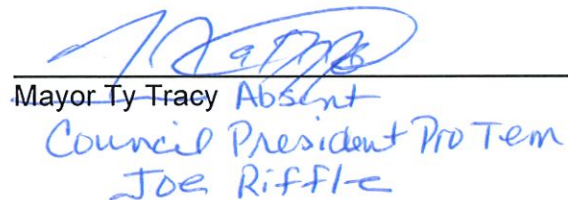 Mayor Ty Tracy Absent
Council President Pro Tem
Joe Riffle